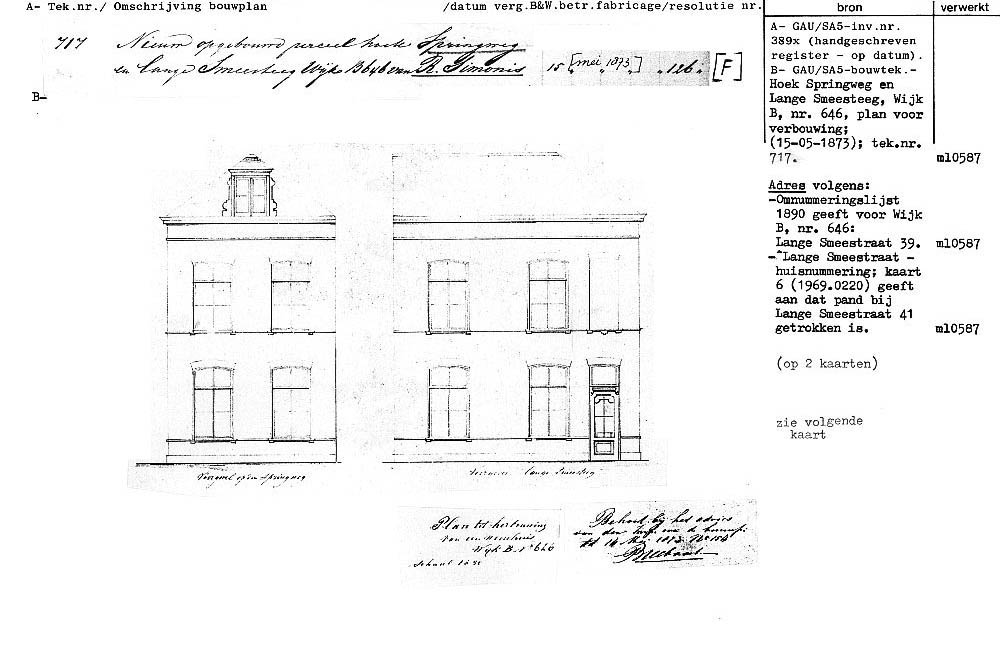 A- Tek.nr./ Omschrijving bouwplan /datum verg.B&W.betr.fabricage/resolutie nr.
bron
verwerkt
717 Nieuw opgebouwd perceel hoek Springweg
en Lange Smeesteeg Wijk B 646 van R. Timonis 15 [mei 1873] „ 126 „ [F]
B-
A- GAU/SA5-inv.nr.
389x (handgeschreven
register - op datum).
B- GAU/SA5-bouwtek.-
Hoek Springweg en
Lange Smeesteeg, Wijk
B, nr. 646, plan voor
verbouwing;
(15-05-1873); tek.nr.
717. ml0587
Adres volgens:
-Omnummeringslijst
1890 geeft voor Wijk
B, nr. 646:
Lange Smeestraat 39. ml0587
-"Lange Smeestraat -
huisnummering; kaart
6 (1969.0220) geeft
aan dat pand bij
Lange Smeestraat 41
getrokken is. ml0587
(op 2 kaarten)
zie volgende
kaart
Voorgevel op den Springweg
Lange Smeesteeg
Plan tot herbouwing
van een woonhuis
Wijk B. Nº 646
Schaal
Behoort bij het advies
van den
dd 14 Mei 1873 Nº 154